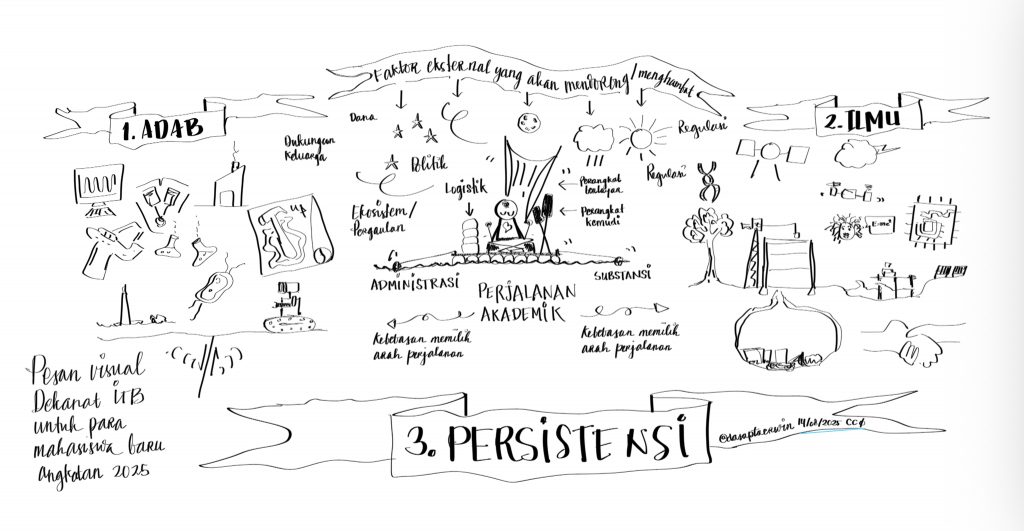 Faktor eksternal yang akan mendorong/menghambat
1. ADAB
2. ILMU
Dana
Dukungan
Keluarga
Politik
Logistik
Ekosistem/
Pergaulan
Regulasi
Regulasi
Perangkat
Perangkat
kemudi
up
E=mc²
ADMINISTRASI
SUBSTANSI
PERJALANAN
AKADEMIK
Kebebasan memilih
arah perjalanan
Kebebasan memilih
arah perjalanan
Pesan visual
Dekanat ITB
untuk para
mahasiswa baru
angkatan 2025
3. PERSISTENSI
@dasaptaerwin 14/08/2025 CC0